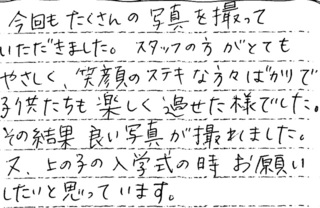 今回も たくさんの 写真 を 撮って
いただきました。 スタッフの方 がとても
やさしく、笑顔のステキな方々ばかりで
子供たちも 楽しく 過せた様でした。
その結果 良い写真 が 撮れました。
又、上の子の入学式の時 お願い
したいと思っています。